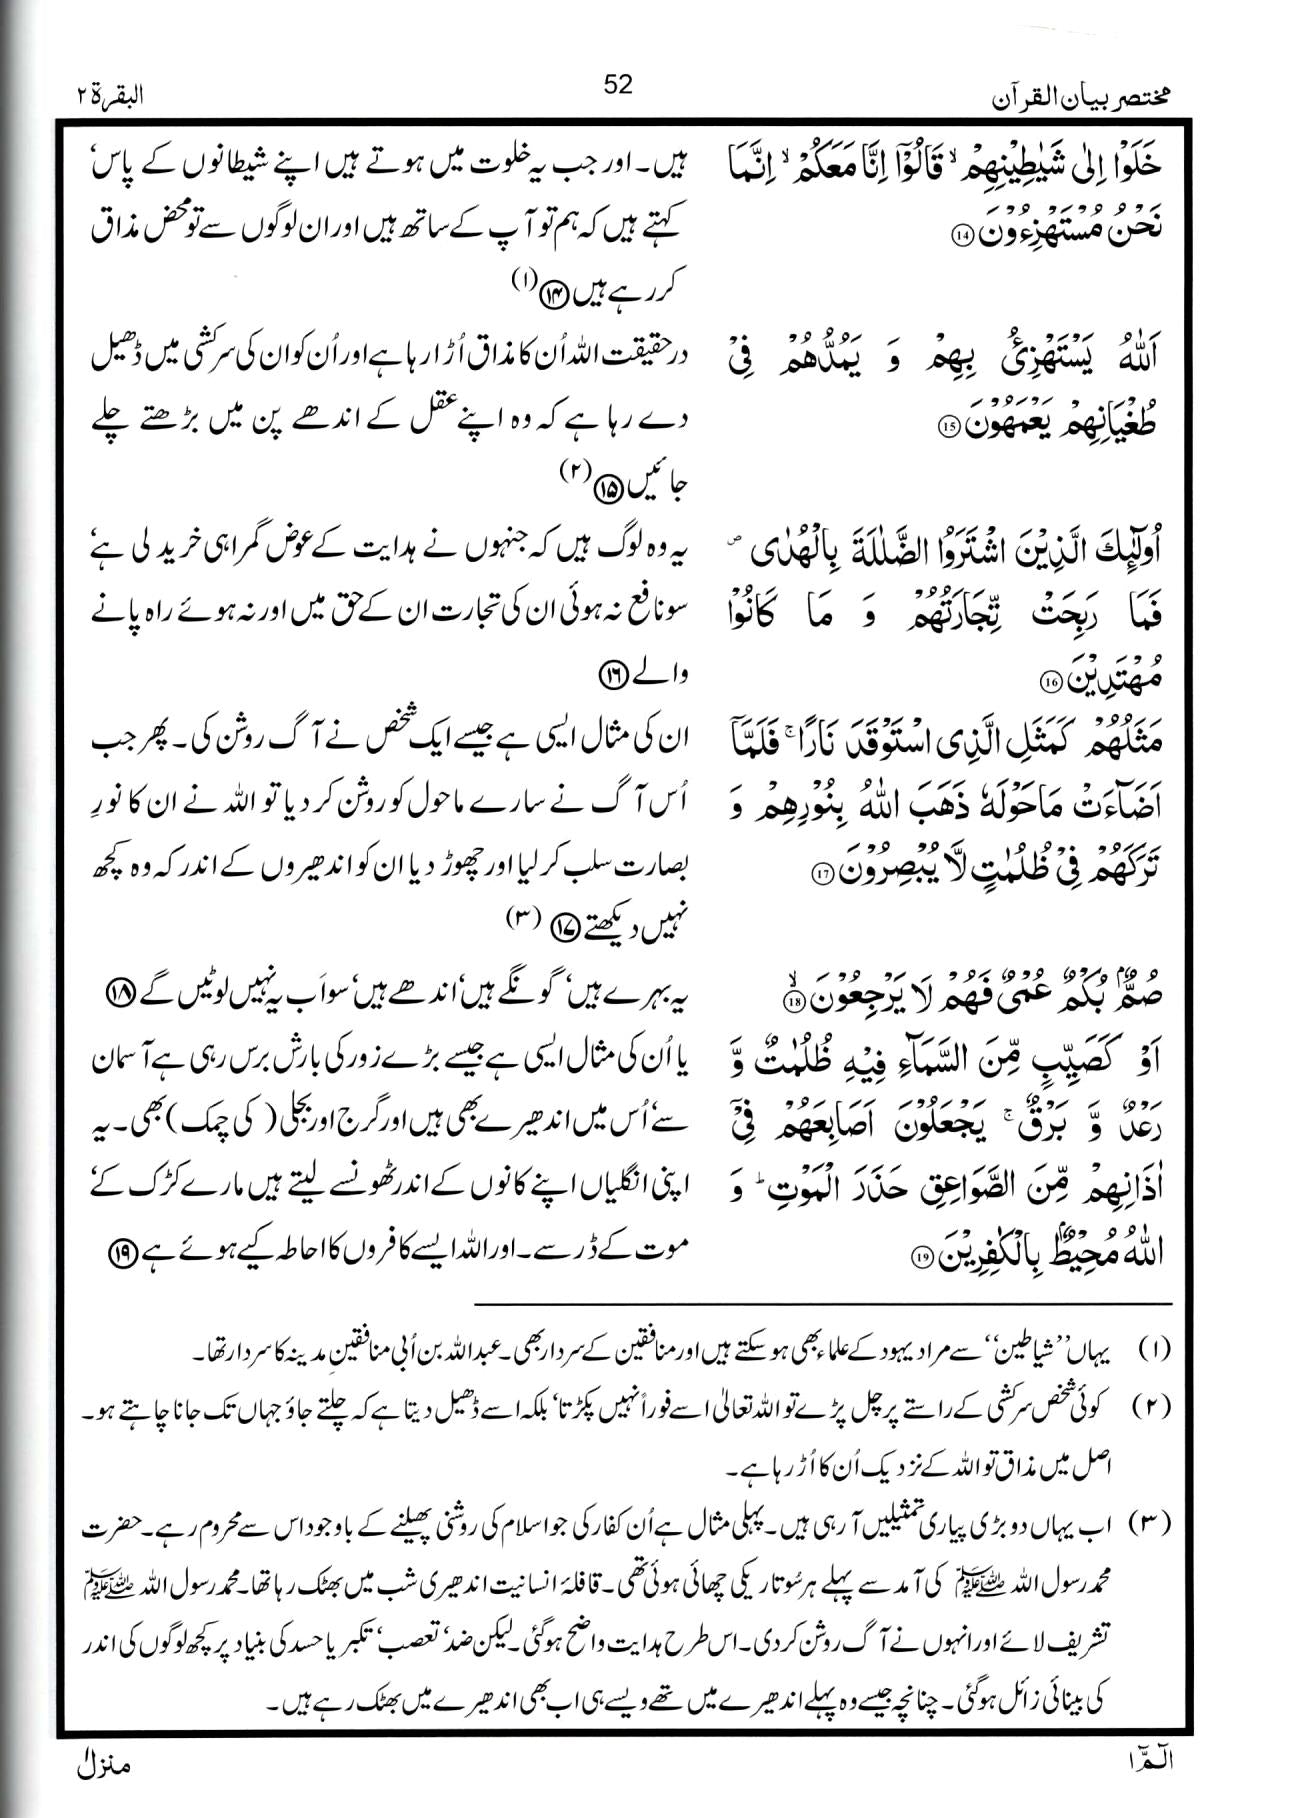 مختصر بیان القرآن
52
البقرۃ ۲
خَلَوْا اِلٰی شَیٰطِیْنِهِمْ ۙ قَالُوْۤا اِنَّا مَعَکُمْ ۙ اِنَّمَا
نَحْنُ مُسْتَهْزِءُوْنَ ⑭
ہیں۔ اور جب یہ خلوت میں ہوتے ہیں اپنے شیطانوں کے پاس‘
کہتے ہیں کہ ہم تو آپ کے ساتھ ہیں اور ان لوگوں سے تو محض مذاق
کر رہے ہیں ⓮ (۱)
اَللّٰهُ یَسْتَهْزِئُ بِهِمْ وَ یَمُدُّهُمْ فِیْ
طُغْیَانِهِمْ یَعْمَهُوْنَ ⑮
درحقیقت اللہ اُن کا مذاق اُڑا رہا ہے اور اُن کو ان کی سرکشی میں ڈھیل
دے رہا ہے کہ وہ اپنے عقل کے اندھے پن میں بڑھتے چلے
جائیں ⓯ (۲)
اُولٰٓئِكَ الَّذِیْنَ اشْتَرَوُا الضَّلٰلَةَ بِالْهُدٰی ۪
فَمَا رَبِحَتْ تِّجَارَتُهُمْ وَ مَا کَانُوْا
مُهْتَدِیْنَ ⑯
یہ وہ لوگ ہیں کہ جنہوں نے ہدایت کے عوض گمراہی خرید لی ہے‘
سو نافع نہ ہوئی ان کی تجارت ان کے حق میں اور نہ ہوئے راہ پانے
والے ⓰
مَثَلُهُمْ کَمَثَلِ الَّذِی اسْتَوْقَدَ نَارًا ۚ فَلَمَّاۤ
اَضَآءَتْ مَاحَوْلَهٗ ذَهَبَ اللّٰهُ بِنُوْرِهِمْ وَ
تَرَکَهُمْ فِیْ ظُلُمٰتٍ لَّا یُبْصِرُوْنَ ⑰
ان کی مثال ایسی ہے جیسے ایک شخص نے آگ روشن کی۔ پھر جب
اُس آگ نے سارے ماحول کو روشن کر دیا تو اللہ نے ان کا نورِ
بصارت سلب کر لیا اور چھوڑ دیا ان کو اندھیروں کے اندر کہ وہ کچھ
نہیں دیکھتے ⓱ (۳)
صُمٌّۢ بُکْمٌ عُمْیٌ فَهُمْ لَا یَرْجِعُوْنَ ۙ ⑱
یہ بہرے ہیں‘ گونگے ہیں‘ اندھے ہیں‘ سو اَب یہ نہیں لوٹیں گے ⓲
اَوْ کَصَیِّبٍ مِّنَ السَّمَآءِ فِیْهِ ظُلُمٰتٌ وَّ
رَعْدٌ وَّ بَرْقٌ ۚ یَجْعَلُوْنَ اَصَابِعَهُمْ فِیْۤ
اٰذَانِهِمْ مِّنَ الصَّوَاعِقِ حَذَرَ الْمَوْتِ ؕ وَ
اللّٰهُ مُحِیْطٌۢ بِالْکٰفِرِیْنَ ⑲
یا اُن کی مثال ایسی ہے جیسے بڑے زور کی بارش برس رہی ہے آسمان
سے‘ اُس میں اندھیرے بھی ہیں اور گرج اور بجلی (کی چمک) بھی۔ یہ
اپنی انگلیاں اپنے کانوں کے اندر ٹھونسے لیتے ہیں مارے کڑک کے‘
موت کے ڈر سے۔ اور اللہ ایسے کافروں کا احاطہ کیے ہوئے ہے ⓳
(۱) یہاں ’’شیاطین‘‘ سے مراد یہود کے علماء بھی ہو سکتے ہیں اور منافقین کے سردار بھی۔ عبداللہ بن اُبی منافقینِ مدینہ کا سردار تھا۔
(۲) کوئی شخص سرکشی کے راستے پر چل پڑے تو اللہ تعالیٰ اسے فوراً نہیں پکڑتا‘ بلکہ اسے ڈھیل دیتا ہے کہ چلتے جاؤ جہاں تک جانا چاہتے ہو۔
اصل میں مذاق تو اللہ کے نزدیک اُن کا اُڑ رہا ہے۔
(۳) اب یہاں دو بڑی پیاری تمثیلیں آ رہی ہیں۔ پہلی مثال ہے اُن کفار کی جو اسلام کی روشنی پھیلنے کے باوجود اس سے محروم رہے۔ حضرت
محمد رسول اللہ ﷺ کی آمد سے پہلے ہر سُو تاریکی چھائی ہوئی تھی۔ قافلۂ انسانیت اندھیری شب میں بھٹک رہا تھا۔ محمد رسول اللہ ﷺ
تشریف لائے اور انہوں نے آگ روشن کر دی۔ اس طرح ہدایت واضح ہو گئی۔ لیکن ضد‘ تعصب‘ تکبر یا حسد کی بنیاد پر کچھ لوگوں کی اندر
کی بینائی زائل ہو گئی۔ چنانچہ جیسے وہ پہلے اندھیرے میں تھے ویسے ہی اب بھی اندھیرے میں بھٹک رہے ہیں۔
الٓمّٓ ۱
منزل ۱